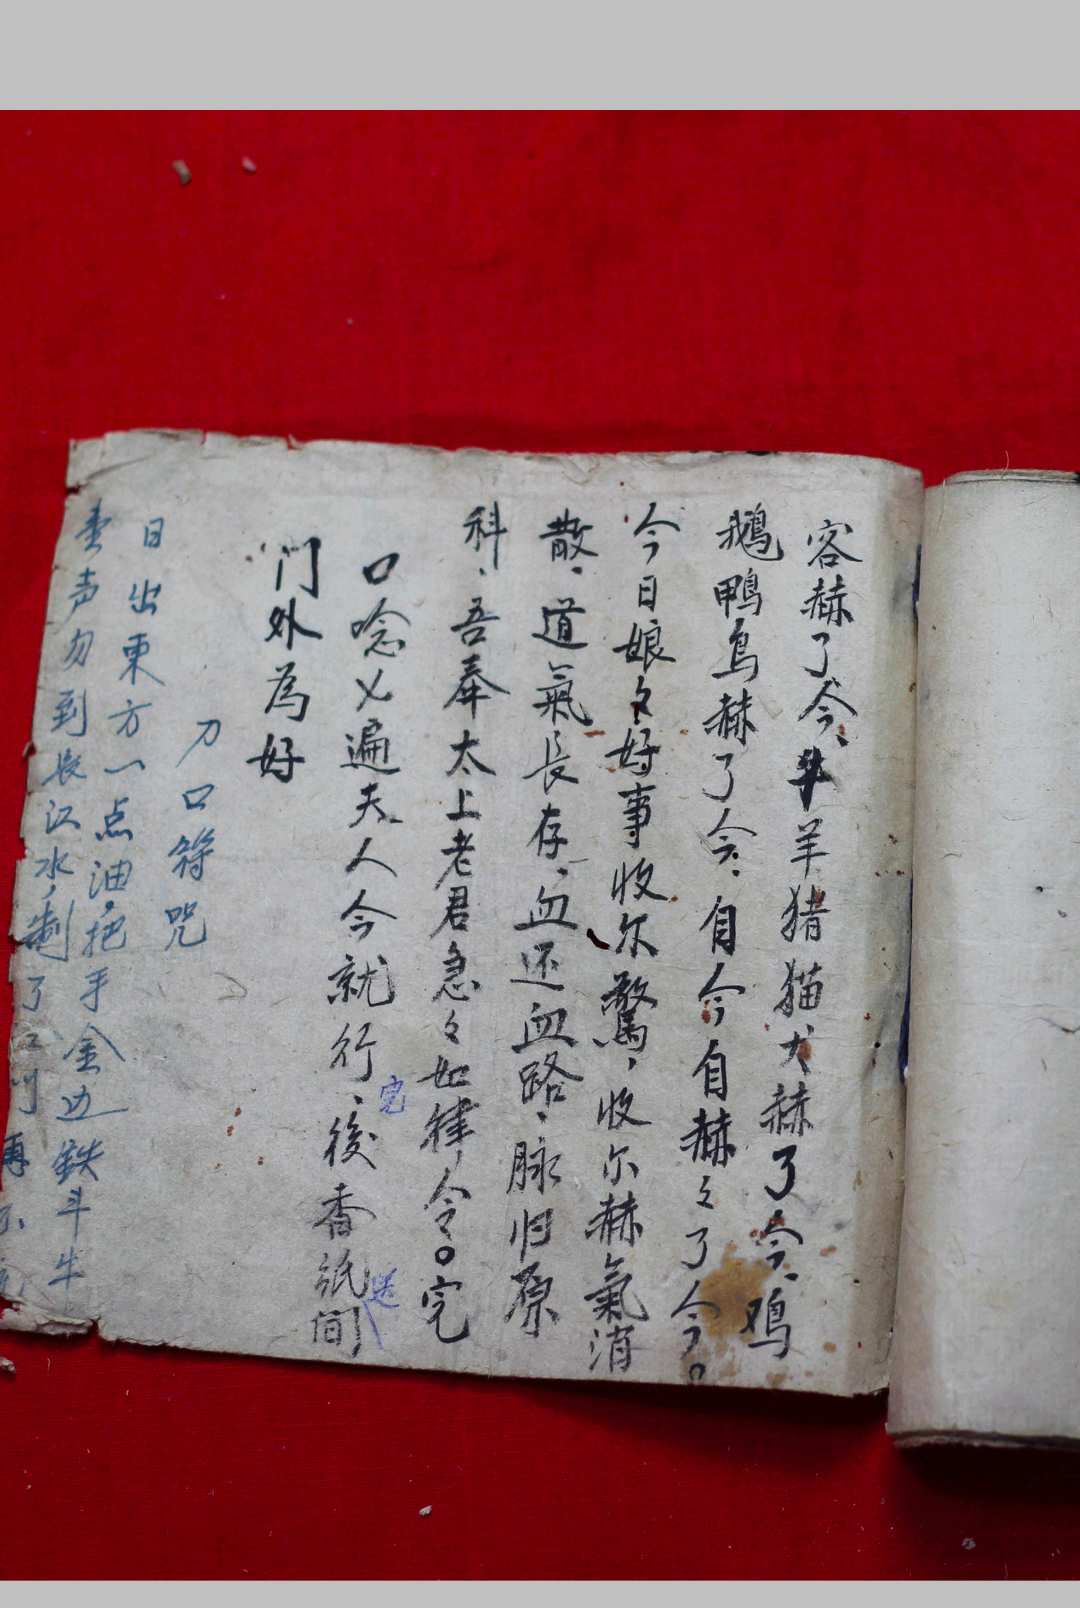 客赫了今、牛羊猪猫犬赫了今、鸡
鹅鸭鸟赫了今、自今自赫々了今。
今日娘々好事收尔驚，收尔赫氣消
散、道氣長存、血还血路、脉归原
科、吾奉太上老君急々如律令。完
口唸乂遍夫人今就行、後香紙 间
完
送
门外為好
刀口符咒
日出東方一点油，把手金边鉄斗牛
声勿到長江水，制了 再不